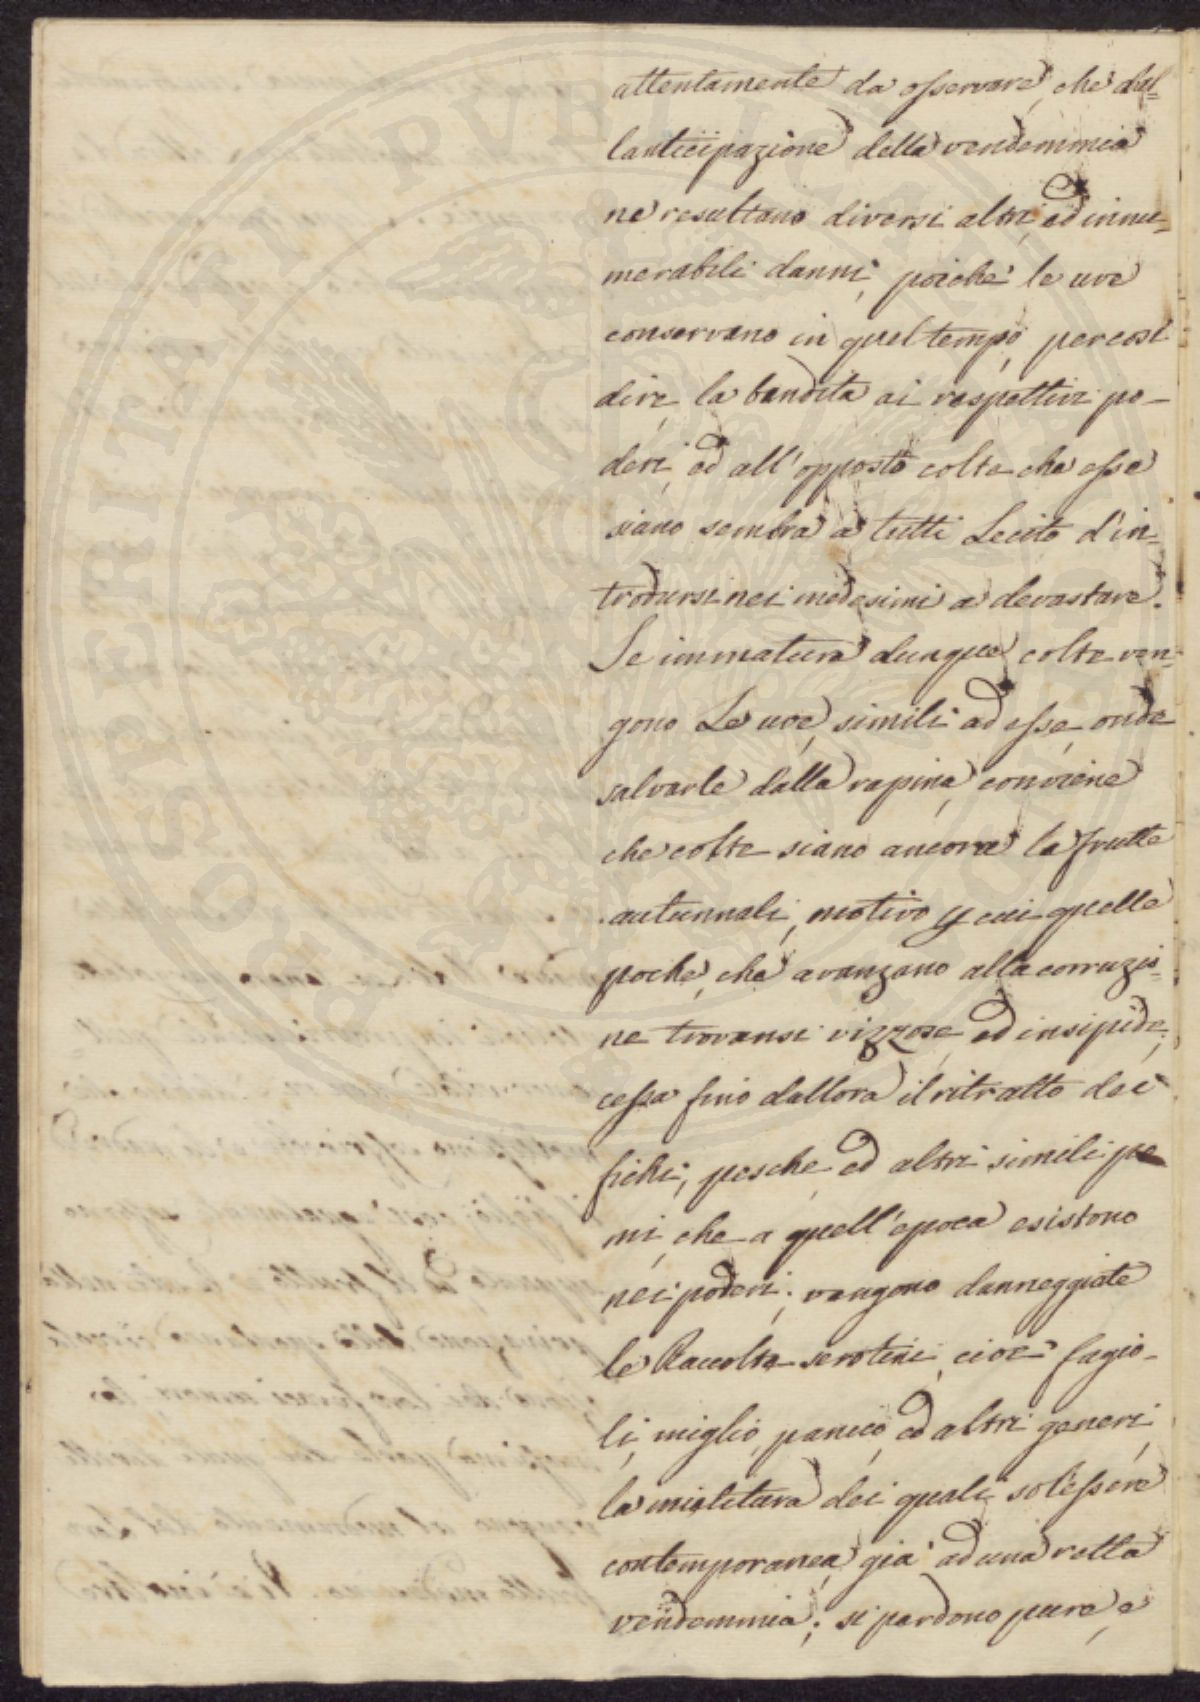 attentamente da osservare, che dal=
lanticipazione della vendemmia
ne resultano diversi altri, ed innu=
merabili danni, poichè le uve
conservano in quel tempo, percosì
dire, la bandita ai respettivi po-
deri, ed all'opposto colte che esse
siano sembra a tutti Lecito d'in=
trodursi nei medesimi a devastare.
Se immature dunque colte ven=
gono Le uve, simili ad esse, onde
salvarle dalla rapina, conviene
che colte siano ancora le frutte
autunnali, motivo p cui quelle
poche, che avanzano alla corruzio=
ne trovansi vizzose, ed insipide,
cessa fino dallora il ritratto dei
fichi, pesche, ed altri simili po
mi, che a quell'epoca esistono
nei poderi; vengono danneggiate
le Raccolte serotini, cioè fagio-
li, miglio, panico, ed altri generi,
la mietitura dei quali sol'essere
contemporanea, già ad una retta
vendemmia; si perdono pure, e
PROSPERITATI PVBLICAE